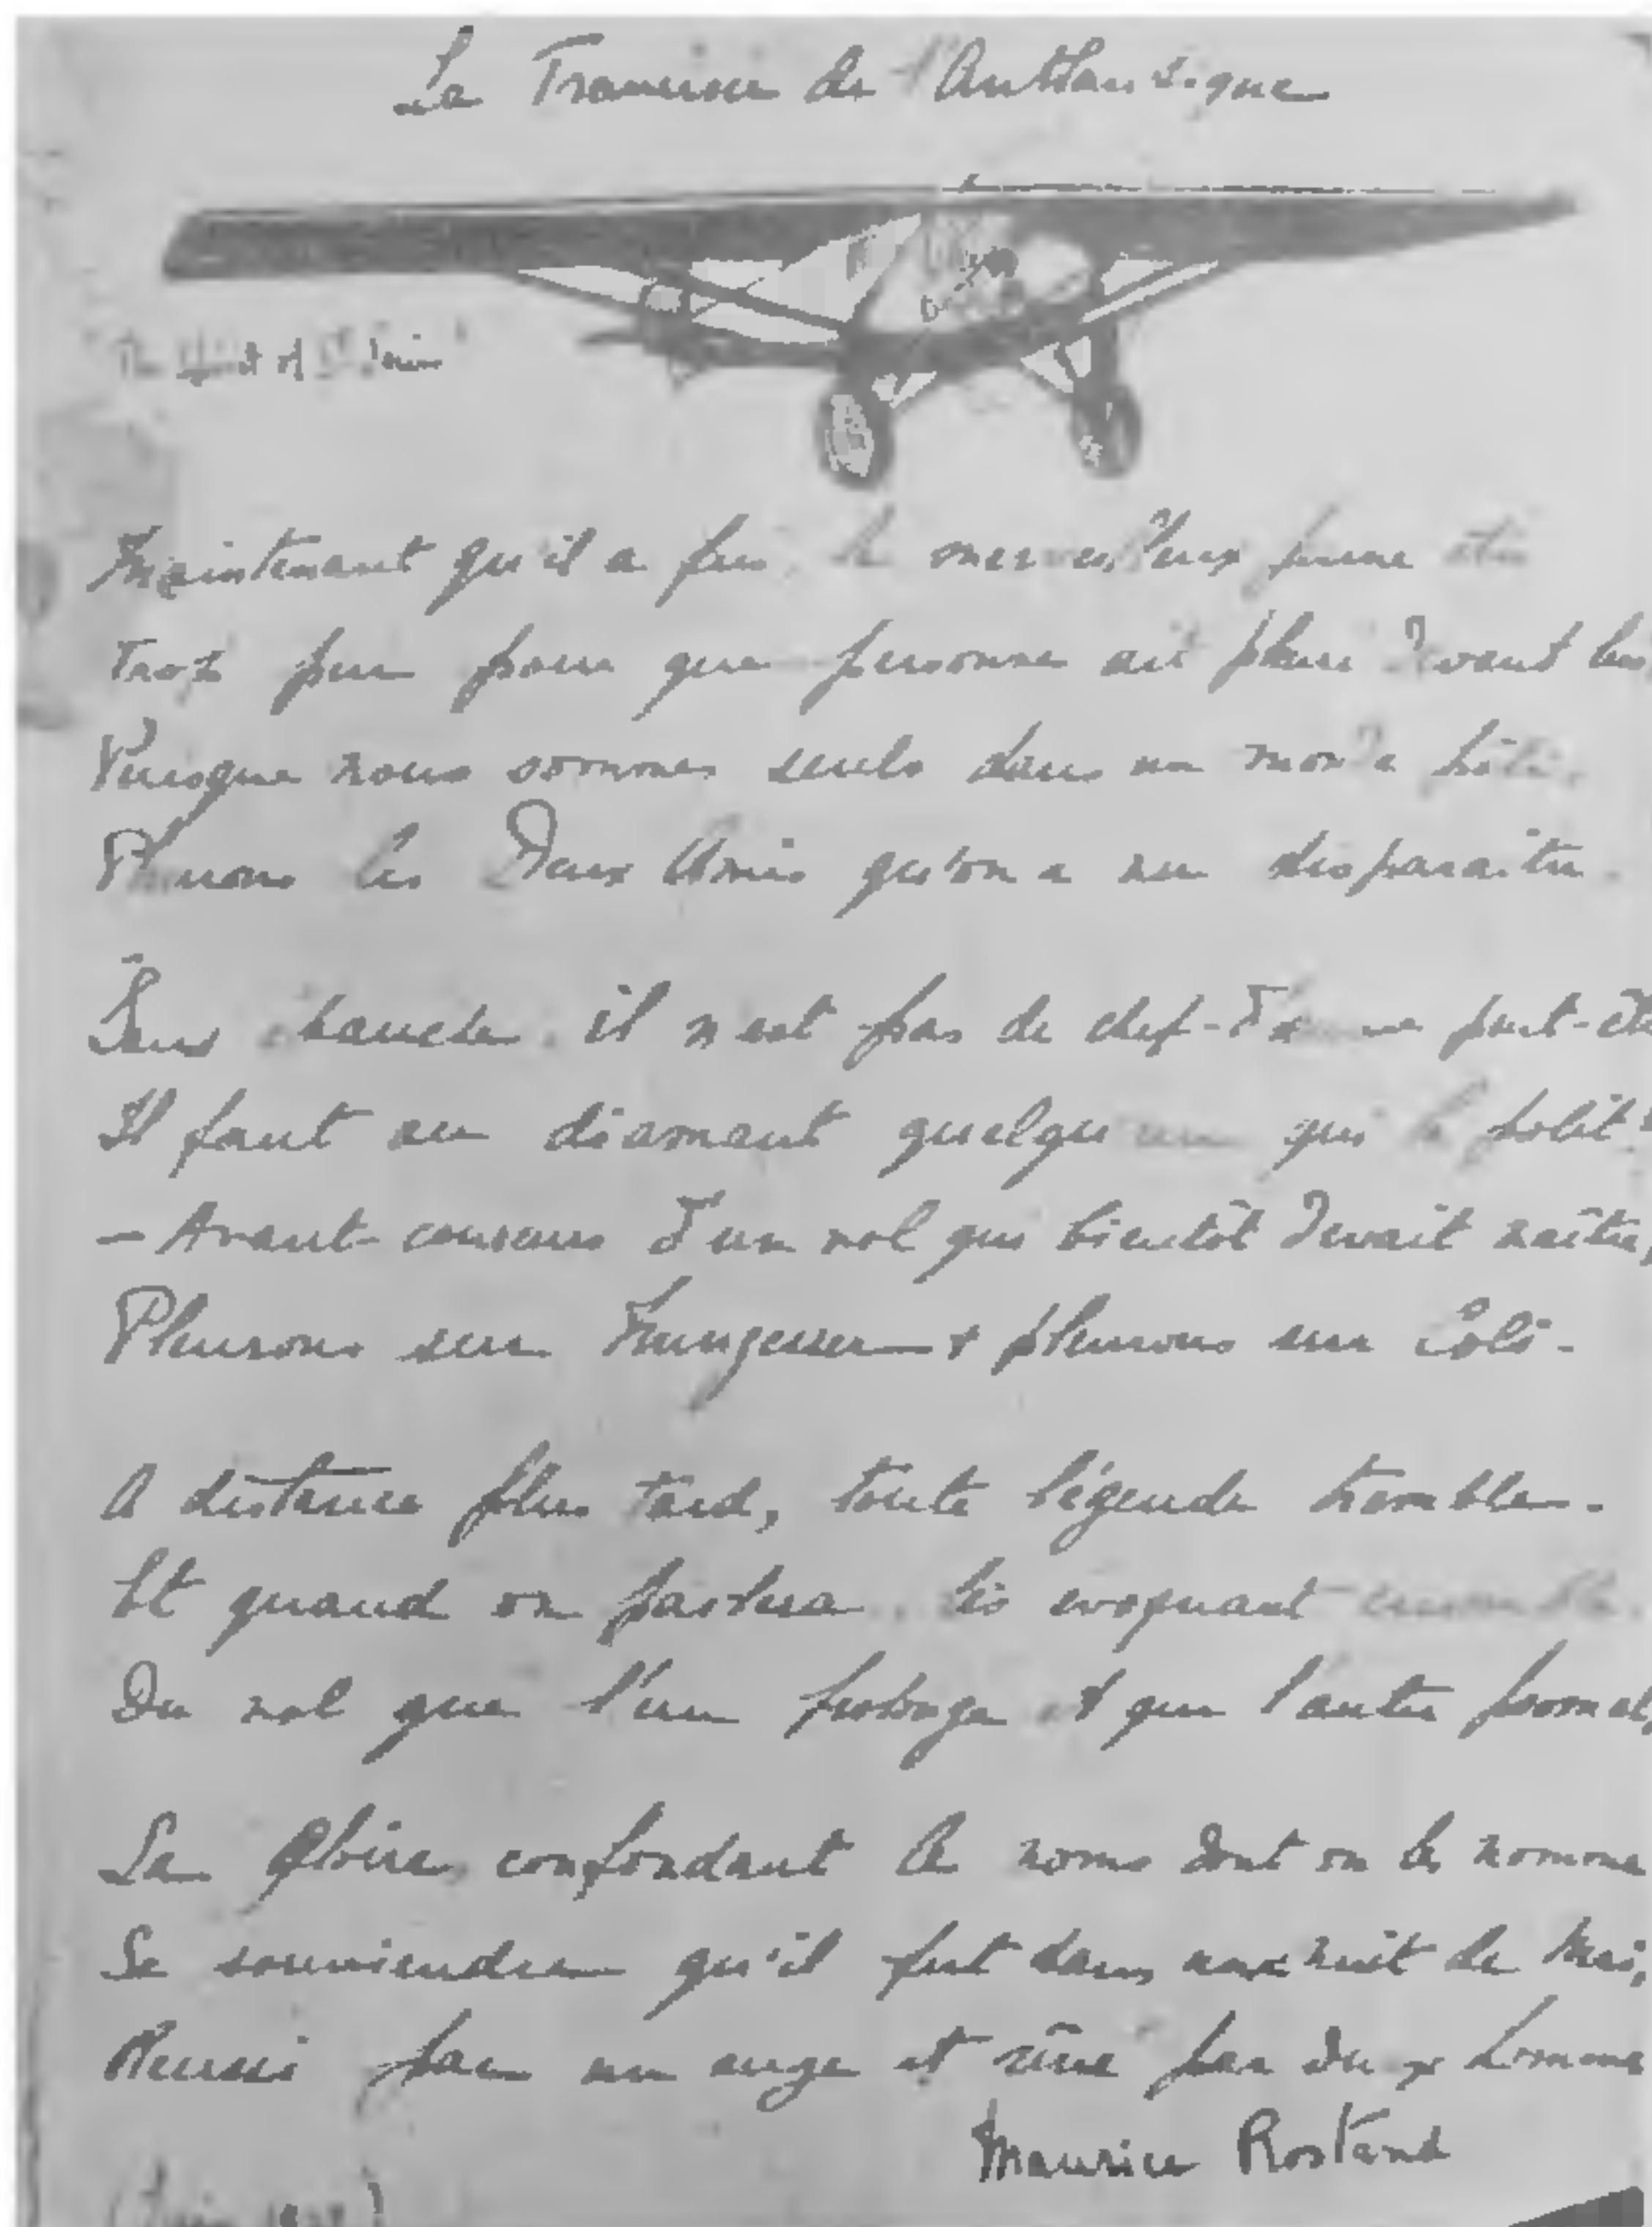 La Traversée de l'Anthlantique
"The Spirit of St Louis"
Maintenant qu'il a fui, le merveilleux jeune être
Trop pur pour que personne ait pleuré devant lui,
Puisque nous sommes seuls dans un monde
Pleurons les Deux Amis qu'on a vu disparaître.
Sans ébauche, il n'est pas de chef-d'œuvre peut-être
Il faut au diamant quelqu'un qui le polit!
- Avant-coureurs d'un vol qui bientôt devait naître,
Pleurons sur Nungesser & pleurons sur Coli.
A distance plus tard, toute légende tremble.
Et quand on parlera, les evoquant ensemble,
Du vol que l'un prolonge et que l'autre promet,
La Gloire, confondant les noms dont on les nomme
Se souviendra qu'il fut dans une nuit de Mai,
Réussi par un ange et rêvé par deux hommes
Maurice Rostand
(Juin 1927)